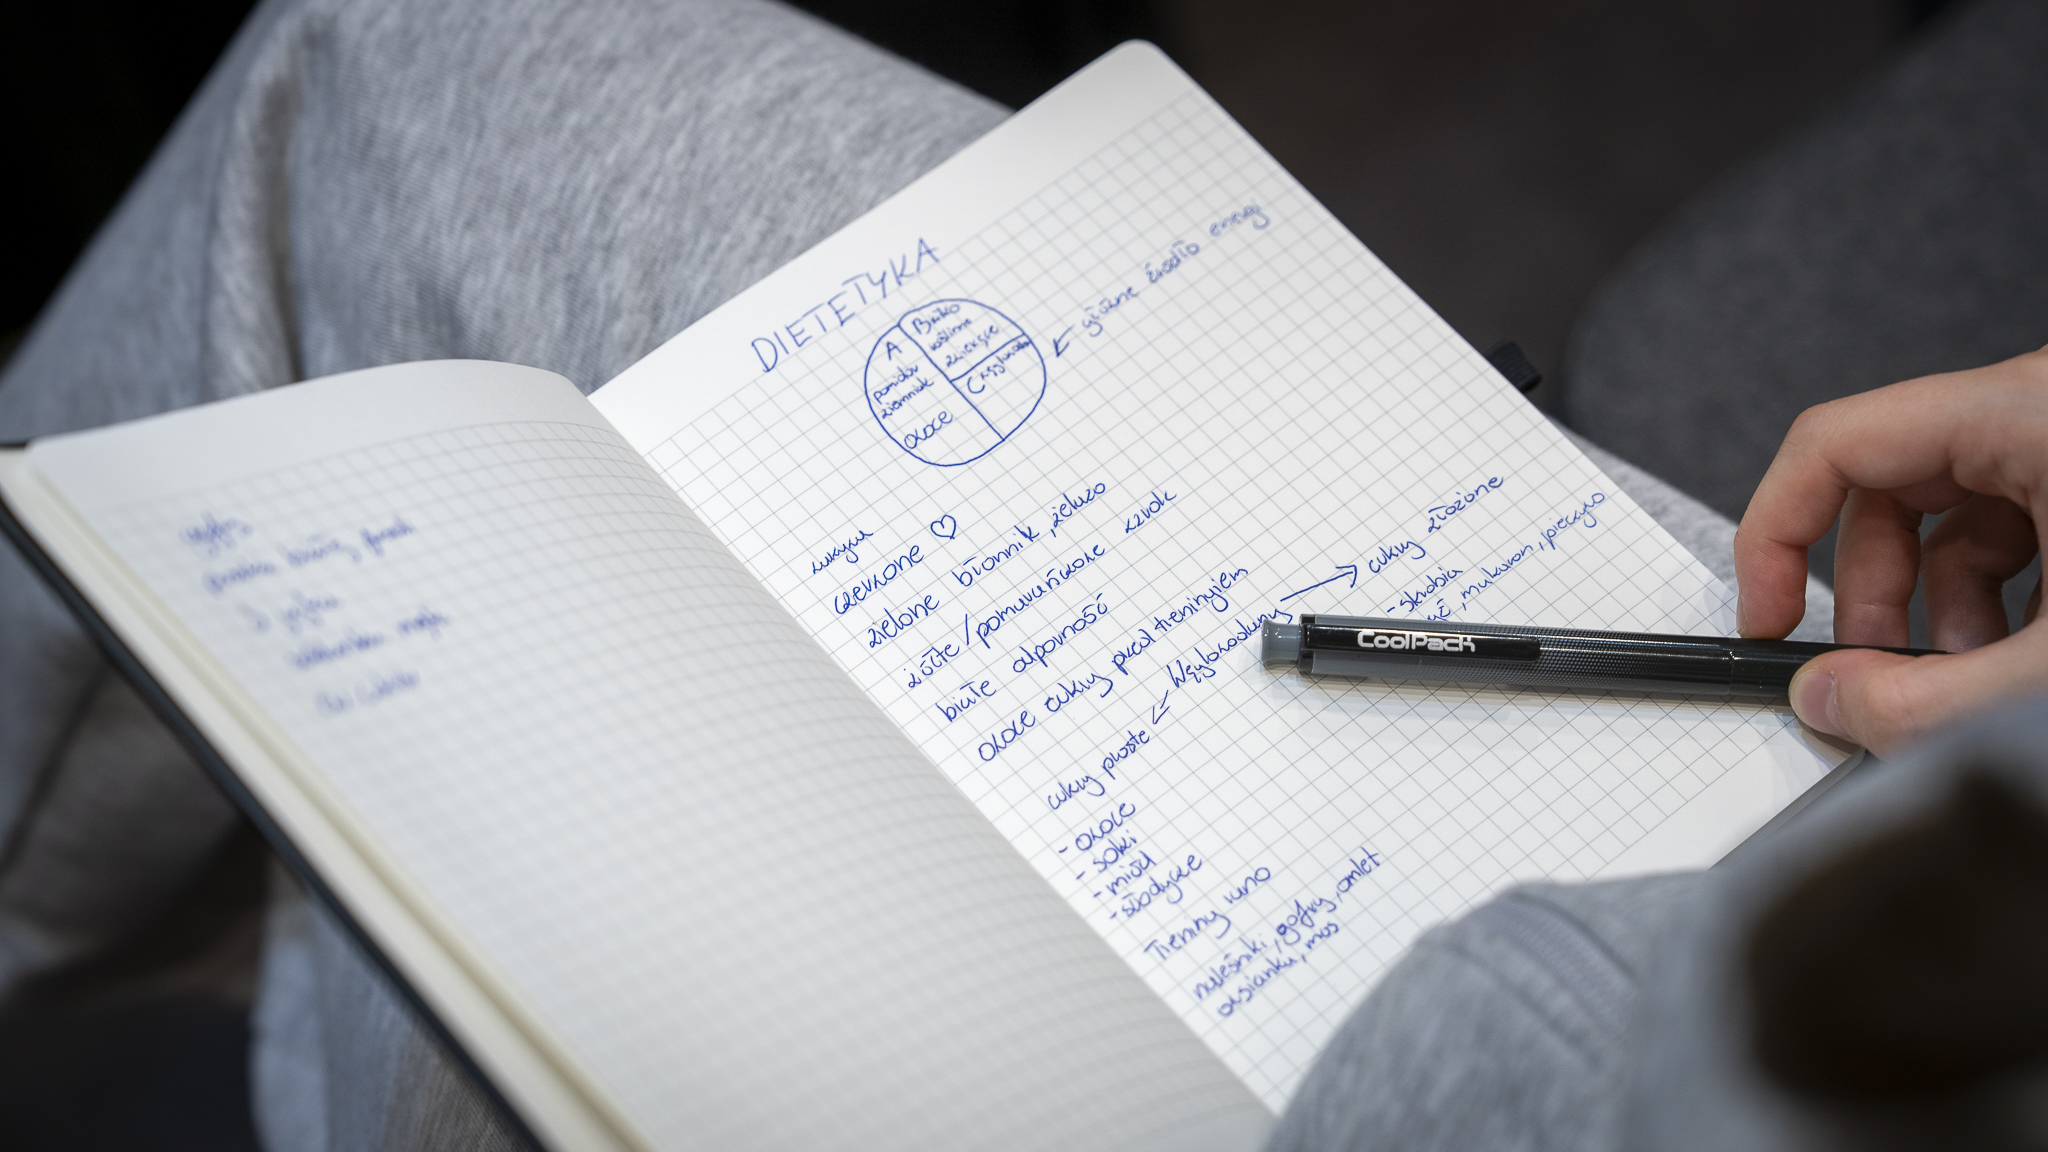 DIETETYKA
główne źródło energi
A
pomidor
ziemniak
owoce
Białko
roślinne
zwierzęce
C węglowod.
warzywa
czerwone ♡
zielone błonnik, żelazo
żółte/pomarańczowe wzrok
białe odporność
owoce cukry przed treningiem
Węglowodany
cukry złożone
- skrobia
makaron, pieczywo
cukry proste
- owoce
- soki
- miód
- słodycze
Trening rano
naleśniki, gofry, omlet
owsianka, mus
CoolPack